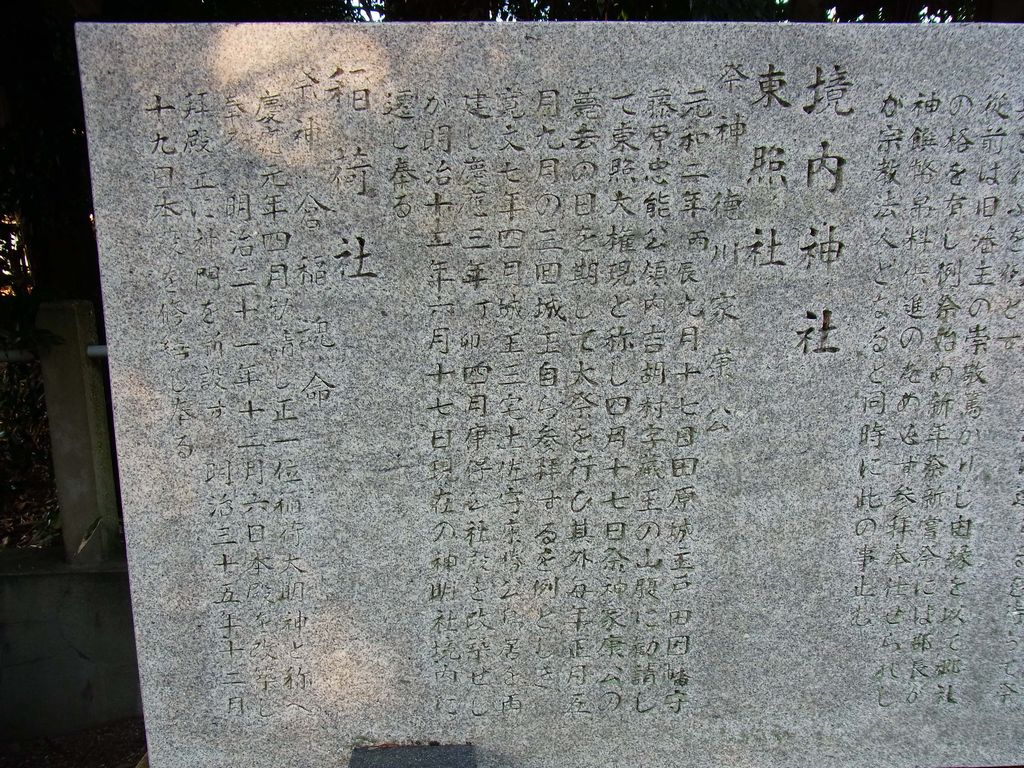 従前は旧藩主の崇敬篤かりし由縁を以て郷社
の格を有し例祭始め新年祭新嘗祭には郡長が
神饌幣帛料供進のため必ず参拝奉仕せられし
が宗教法人となると同時に此の事止む
境内神社
東照社
祭神 徳川家康公
元和二年丙辰九月十七日田原城主戸田因幡守
藤原忠能公領内吉胡村字蔵王の山腹に勧請し
て東照大権現と称し四月十七日祭神家康公の
薨去の日を期して大祭を行ひ其外毎年正月五
月九月の三回城主自ら参拝するを例としき
寛文七年四月城主三宅土佐守康勝公
建し慶應三年丁卯四月康保公社殿を改築せし
が明治十五年六月十七日現在の神明社境内に
遷し奉る
稲荷社
祭神 倉稲魂命
慶應元年四月勧請し正一位稲荷大明神と称へ
奉る 明治二十一年十二月六日本殿を改築し
拝殿並に神門を新設す 明治三十五年十二月
十九日本殿を修繕し奉る